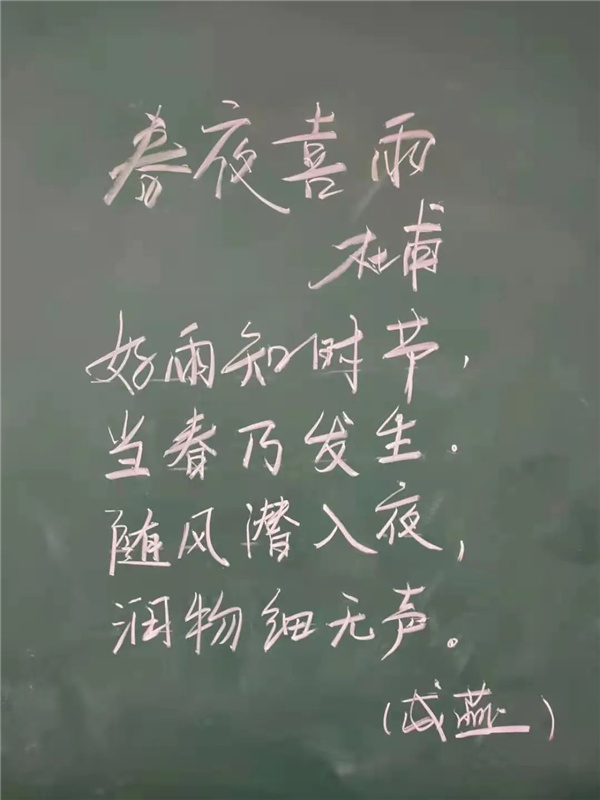 春夜喜雨
杜甫
好雨知时节，
当春乃发生.
随风潜入夜,
润物细无声。
(成燕)